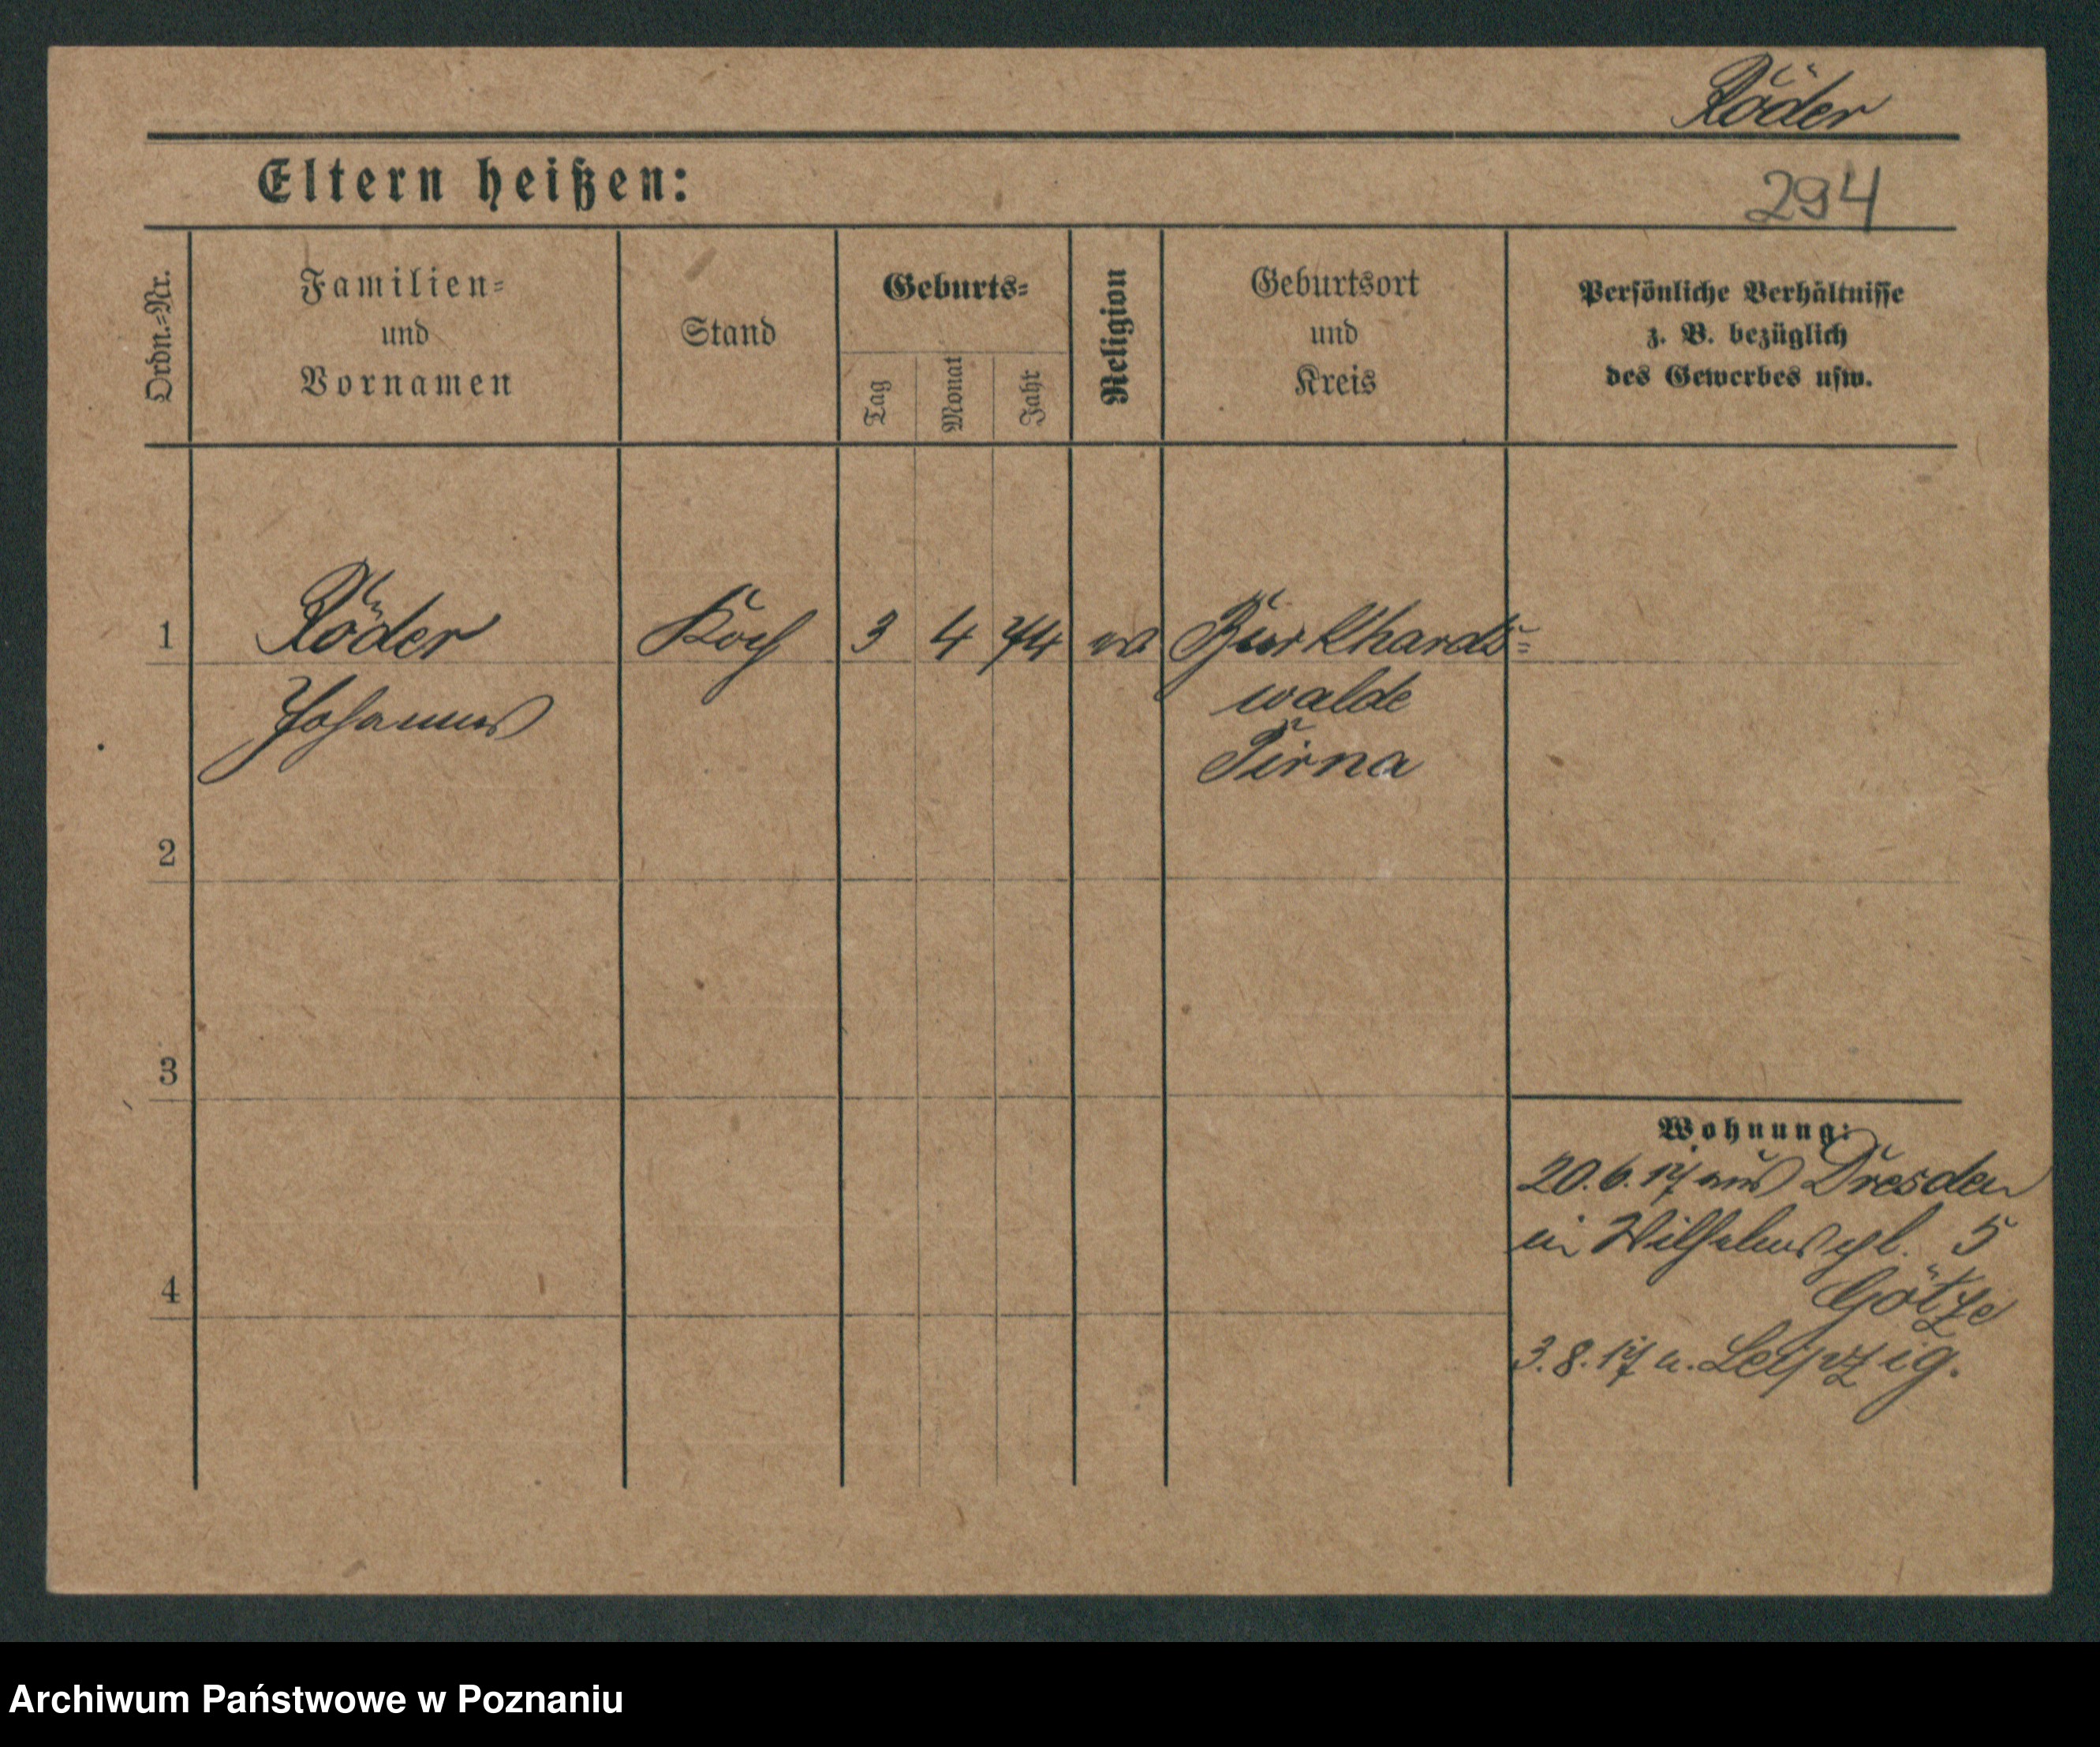 Röder
Eltern heißen:
294
Ordn.=Nr.
Familien=
und
Vornamen
Stand
Geburts=
Tag
Monat
Jahr
Religion
Geburtsort
und
Kreis
Persönliche Verhältnisse
z. B. bezüglich
des Gewerbes usw.
1 Röder Koch 3 4 74 ev Burkhards=
Johannes walde
Pirna
2
3
4
Wohnung:
20.6.17 aus Dresden
in Wilhelmspl. 5
Götze
3.8.17 n. Leipzig.
Archiwum Państwowe w Poznaniu